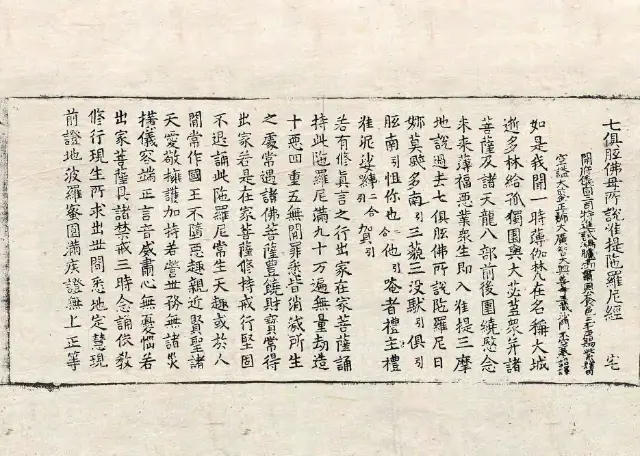 七俱胝佛母所說准提陁羅尼經 宅
開府儀同三司特進試鴻臚卿肅國公食邑三千戶賜紫贈司
空謚大鑒正號大廣智大興善寺三藏沙門不空奉詔譯
如是我聞一時薄伽梵在名稱大城
逝多林給孤獨園與大苾芻眾并諸
菩薩及諸天龍八部前後圍繞愍念
未來薄福惡業眾生即入准提三摩
地說過去七俱胝佛所說陁羅尼曰
娜莫颯多南引三藐三沒馱引俱引
胝南引怛你也二合他引唵者禮主禮
准泥娑嚩二合賀引
若有修真言之行出家在家菩薩誦
持此陁羅尼滿九十万遍無量劫造
十惡四重五無間罪悉皆消滅所生
之處常遇諸佛菩薩豐饒財寶常得
出家若是在家菩薩修持戒行堅固
不退誦此陁羅尼常生天趣或於人
間常作國王不墮惡趣親近賢聖諸
天愛敬擁護加持若營世務無諸災
橫儀容端正言音威肅心無憂惱若
出家菩薩具諸禁戒三時念誦依教
修行現生所求出世間悉地定慧現
前證地波羅蜜圓滿疾證無上正等